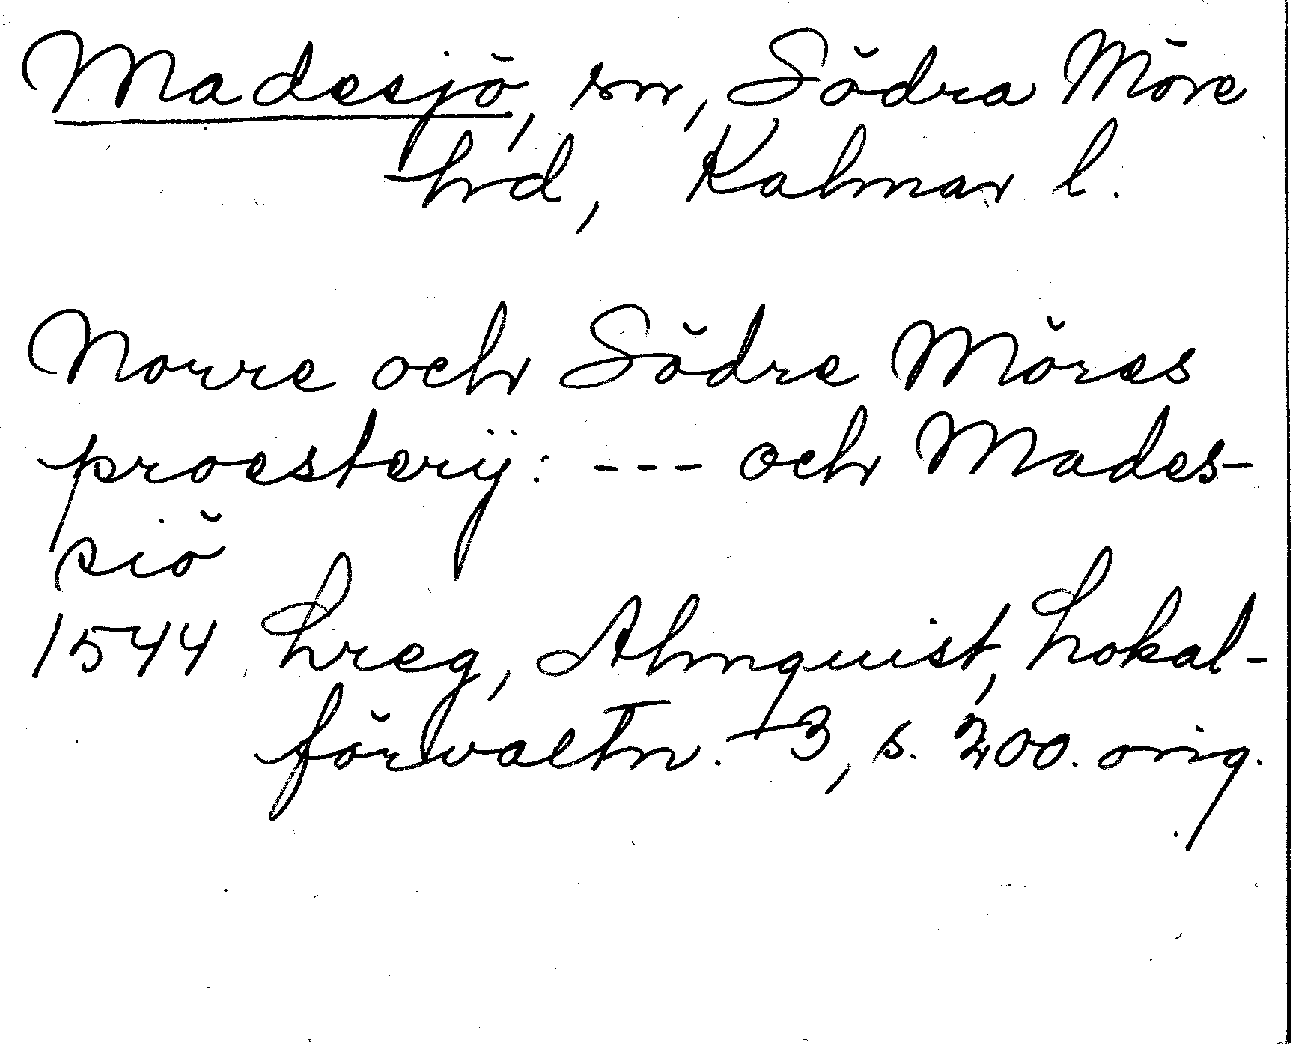 Madesjö, sn, Södra Möre
hrd, Kalmar l.
Norre och Södre Möres
proesterÿ: --- och Mades-
siö
1544 Lreg, Almquist, Lokal-
förvaltn. 3, s. 200. orig.